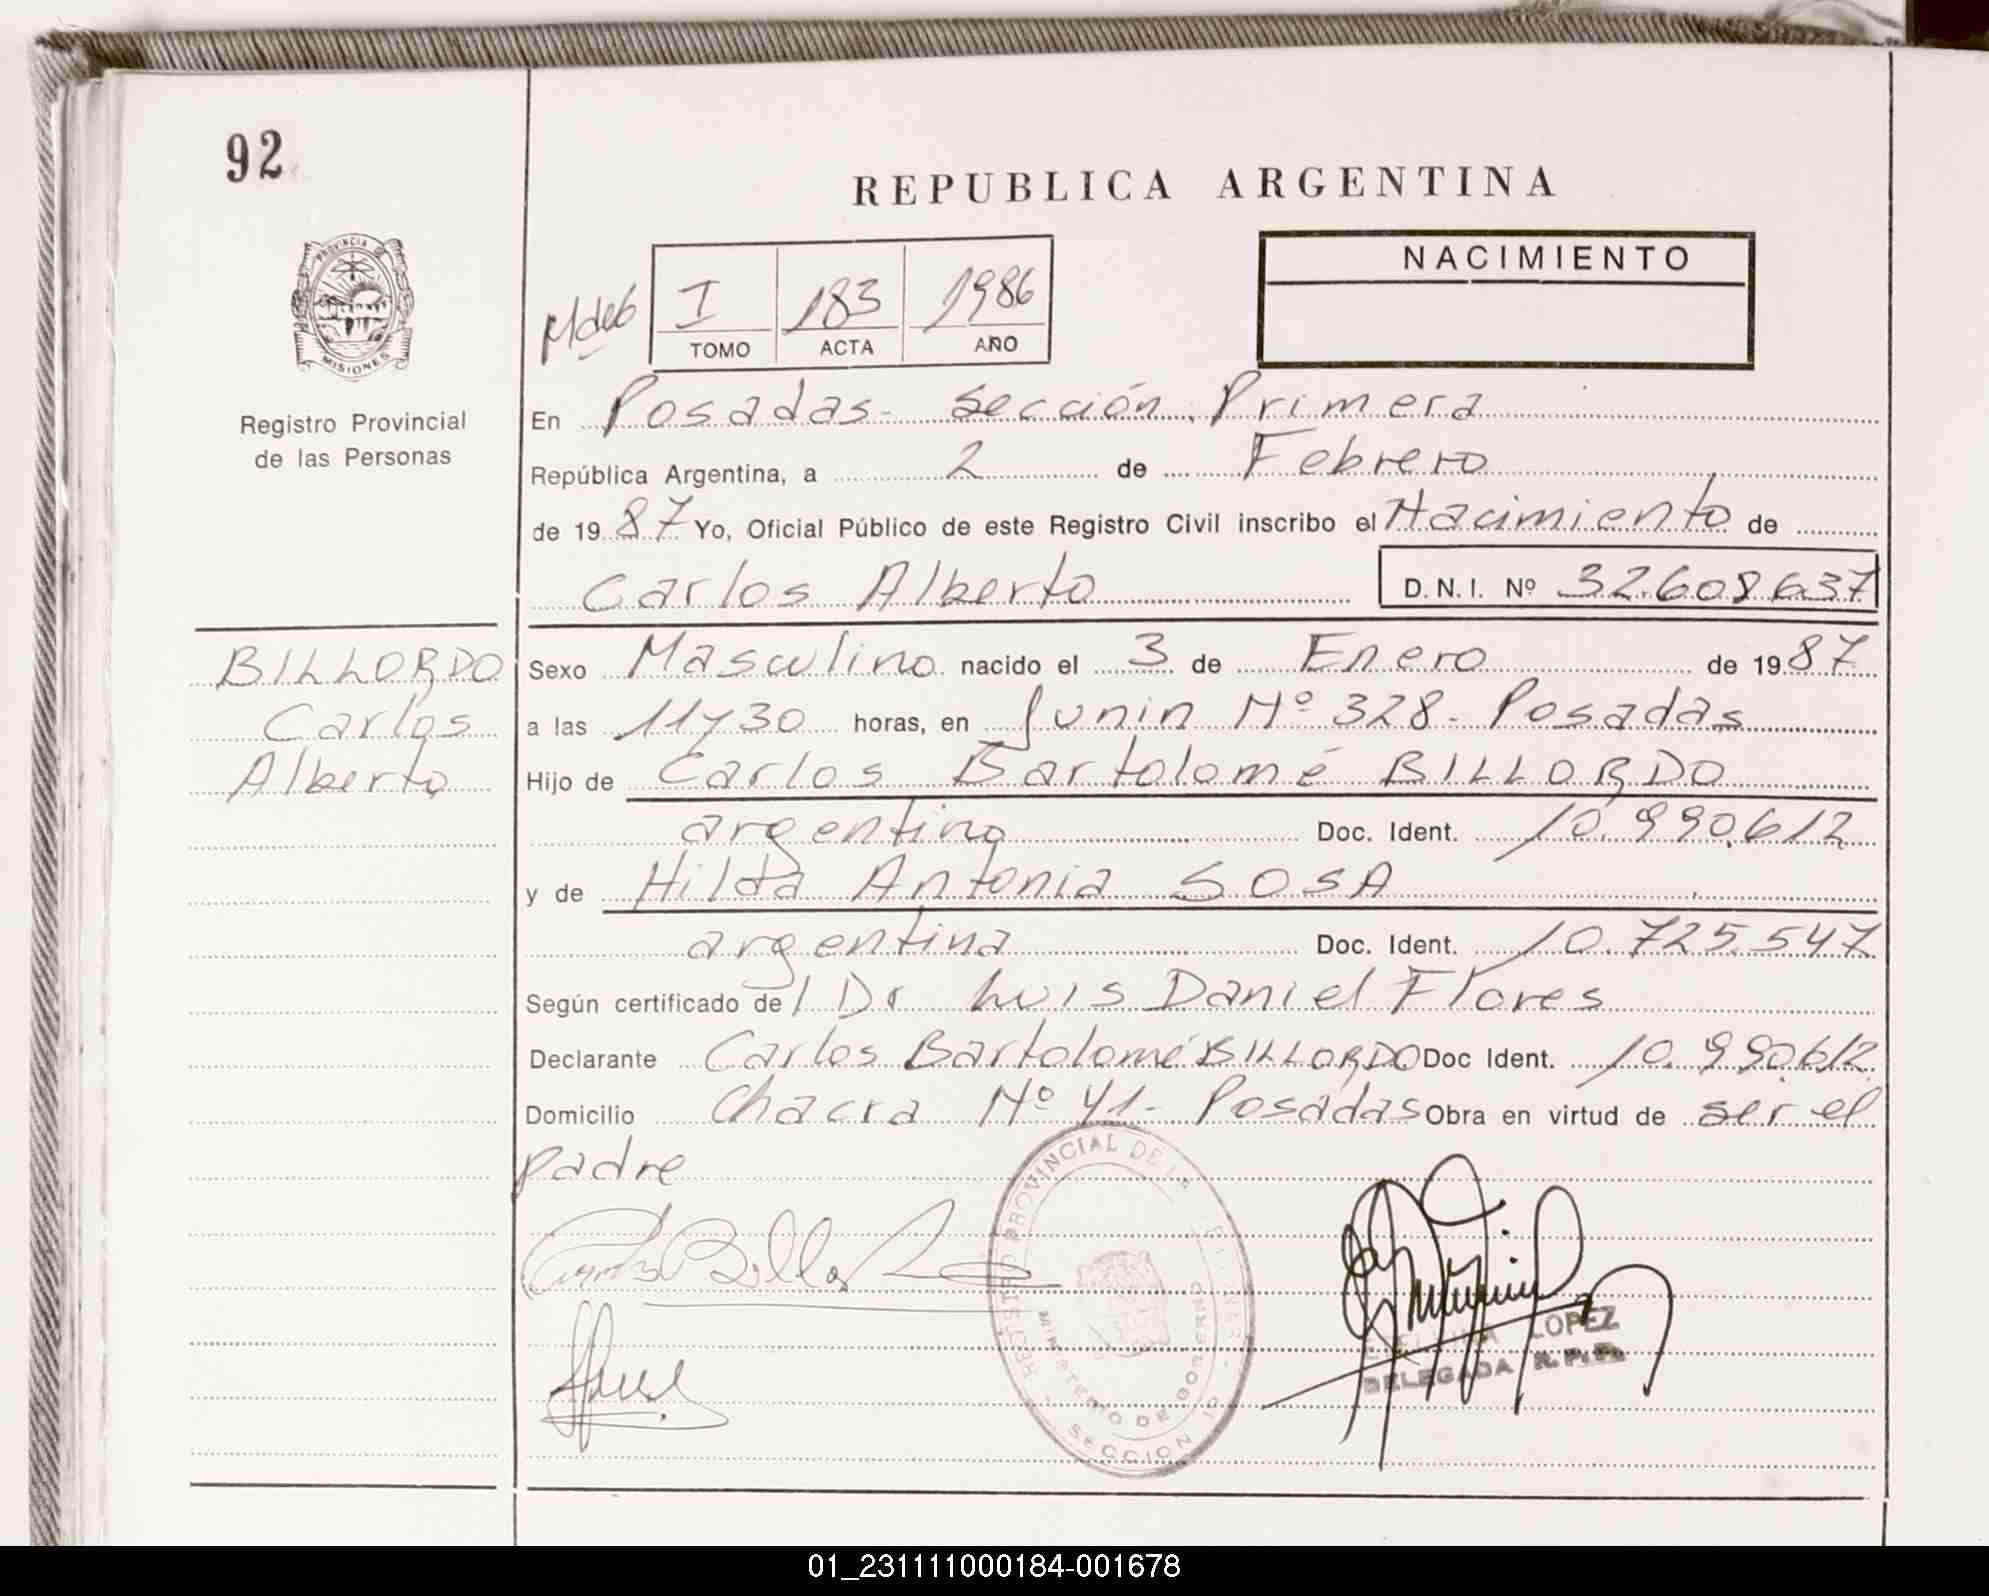 92
REPUBLICA ARGENTINA
PROVINCIA DE
MISIONES
Registro Provincial
de las Personas
I 183 1986
TOMO ACTA AÑO
NACIMIENTO
En Posadas - Sección Primera
República Argentina, a 2 de Febrero
de 1987 Yo, Oficial Público de este Registro Civil inscribo el Nacimiento de
Carlos Alberto D.N.I. Nº 32.608.637
BILLORDO
Carlos
Alberto
Sexo Masculino nacido el 3 de Enero de 1987
a las 11 y 30 horas, en Junin Nº 328 - Posadas
Hijo de Carlos Bartolomé BILLORDO
argentino Doc. Ident. 10.990.612
y de Hilda Antonia SOSA
argentina Doc. Ident. 10.725.547
Según certificado del Dr Luis Daniel Flores
Declarante Carlos Bartolomé BILLORDO Doc Ident. 10.990.612
Domicilio Chacra Nº 41 - Posadas Obra en virtud de ser el
padre
REGISTRO PROVINCIAL DE
MINISTERIO DE GOBIERNO
SECCION
LOPEZ
DELEGADA R.P.P.
01_231111000184-001678